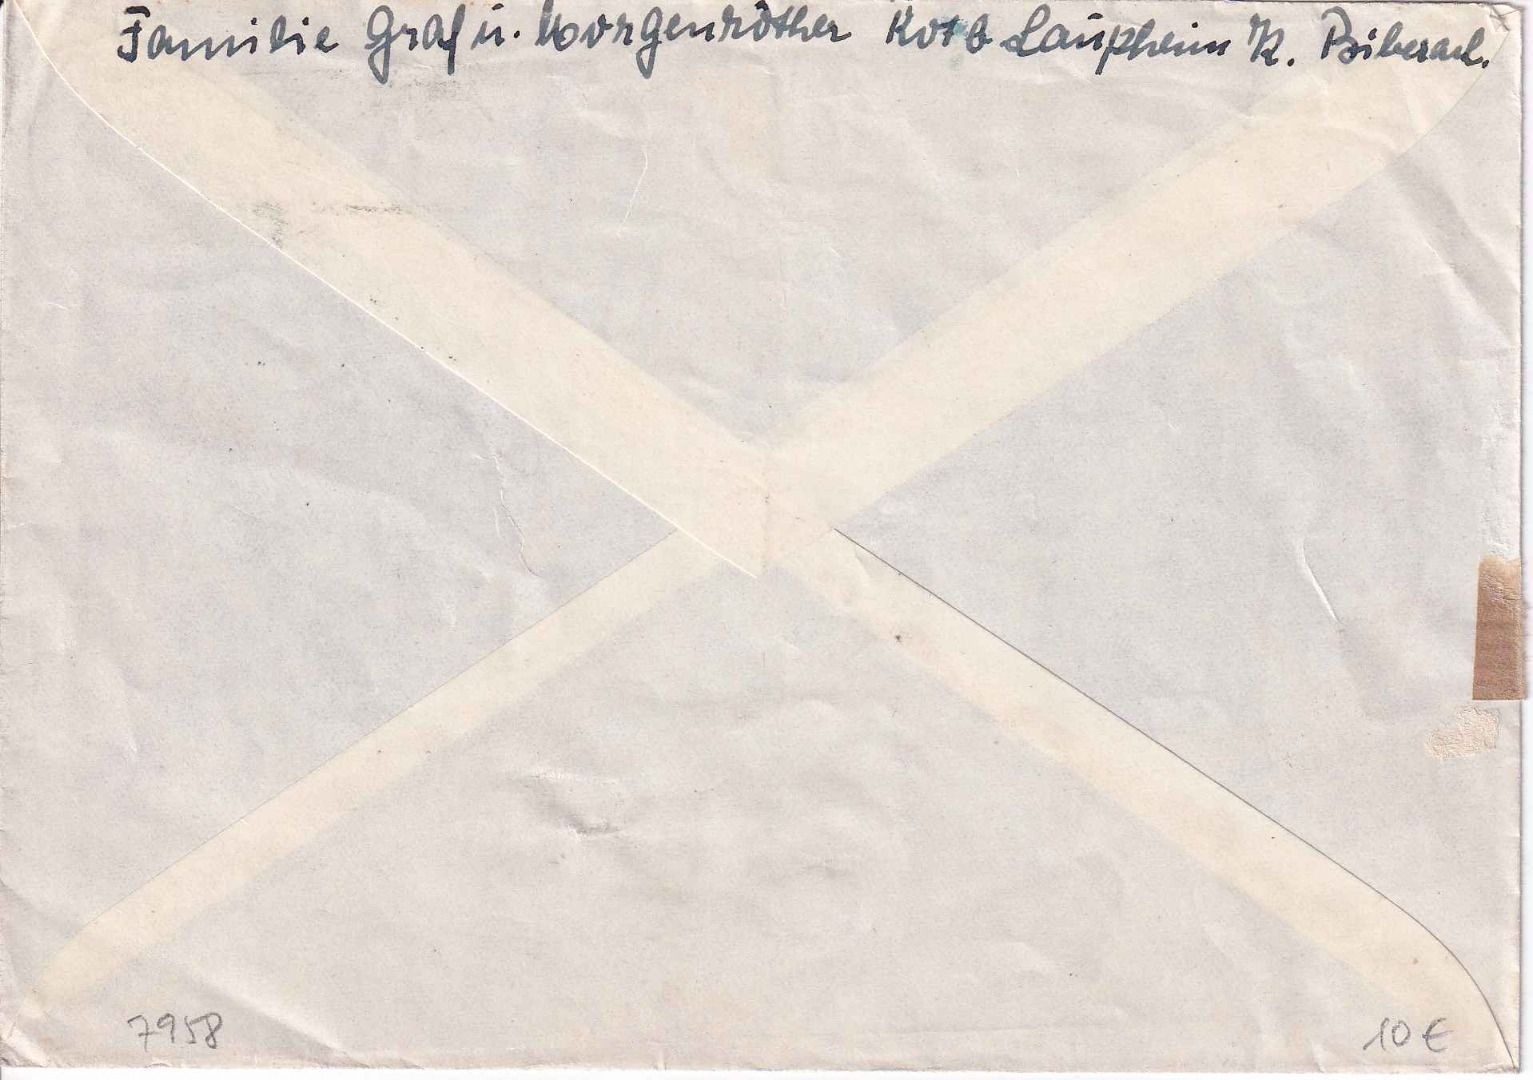 Familie Graf u. Morgenröther Rot b Laupheim K. Biberach.
7958
10 €